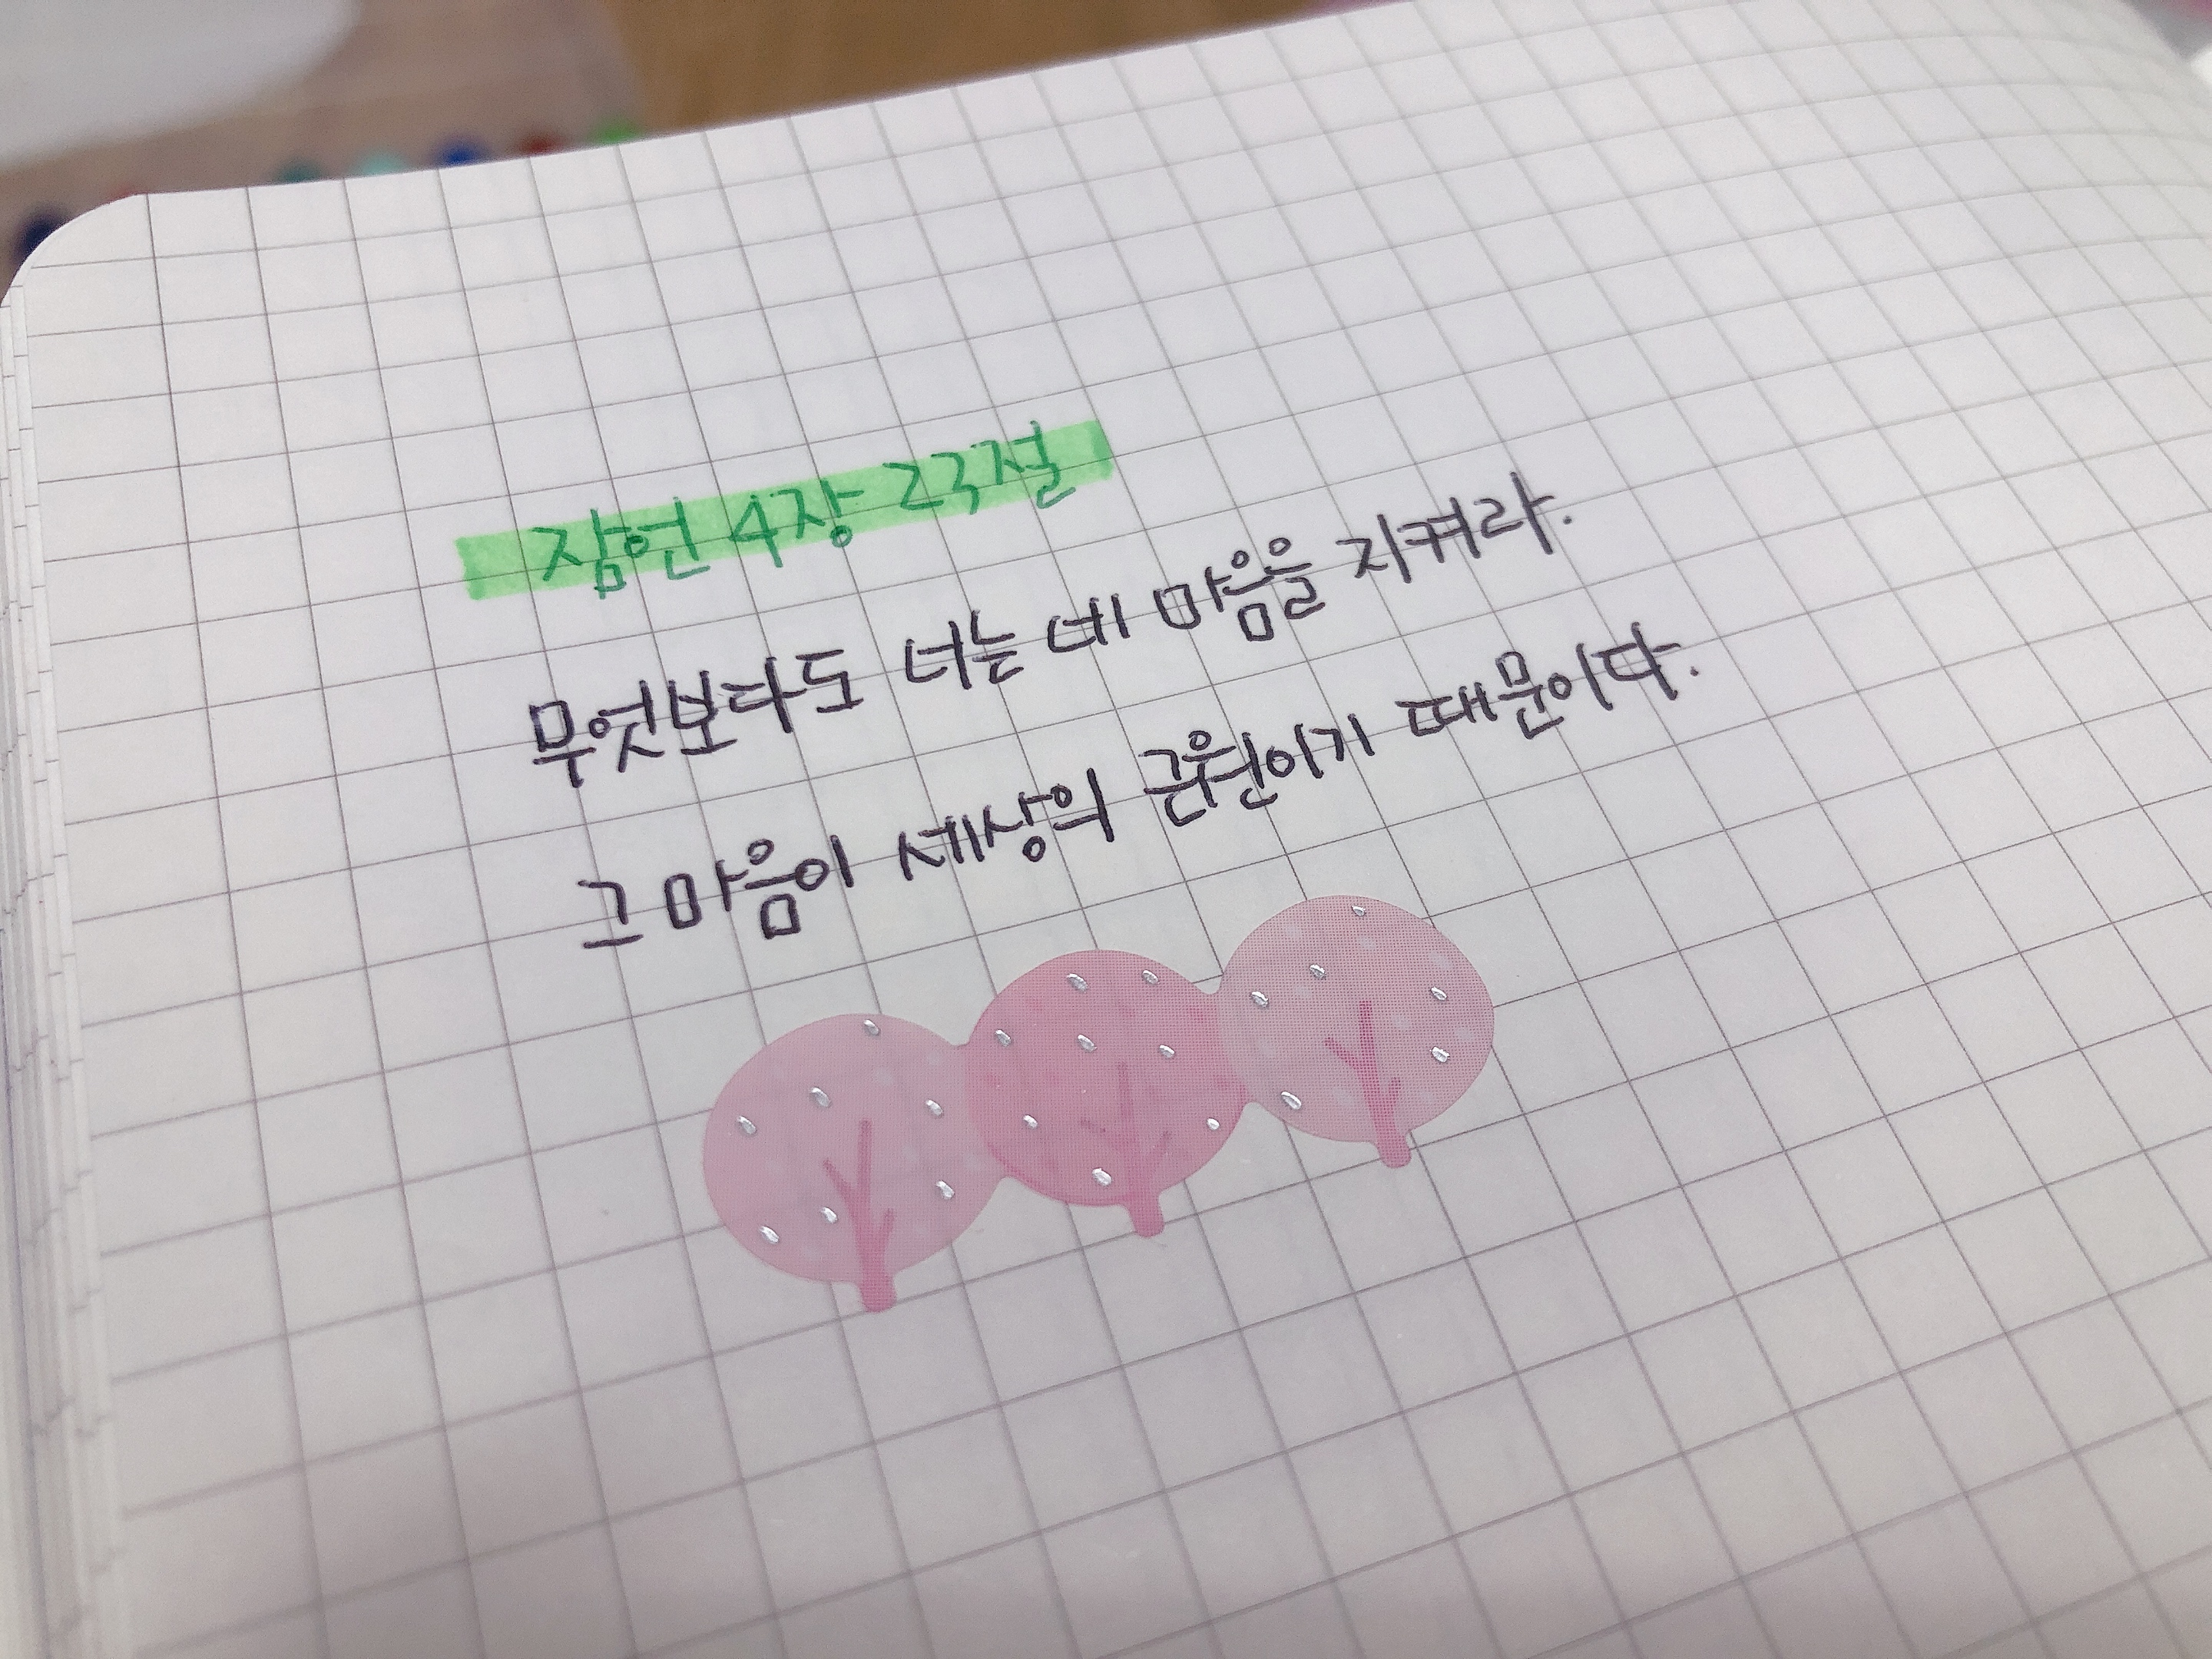 잠언 4장 23절
무엇보다도 너는 네 마음을 지켜라.
그 마음이 세상의 근원이기 때문이다.